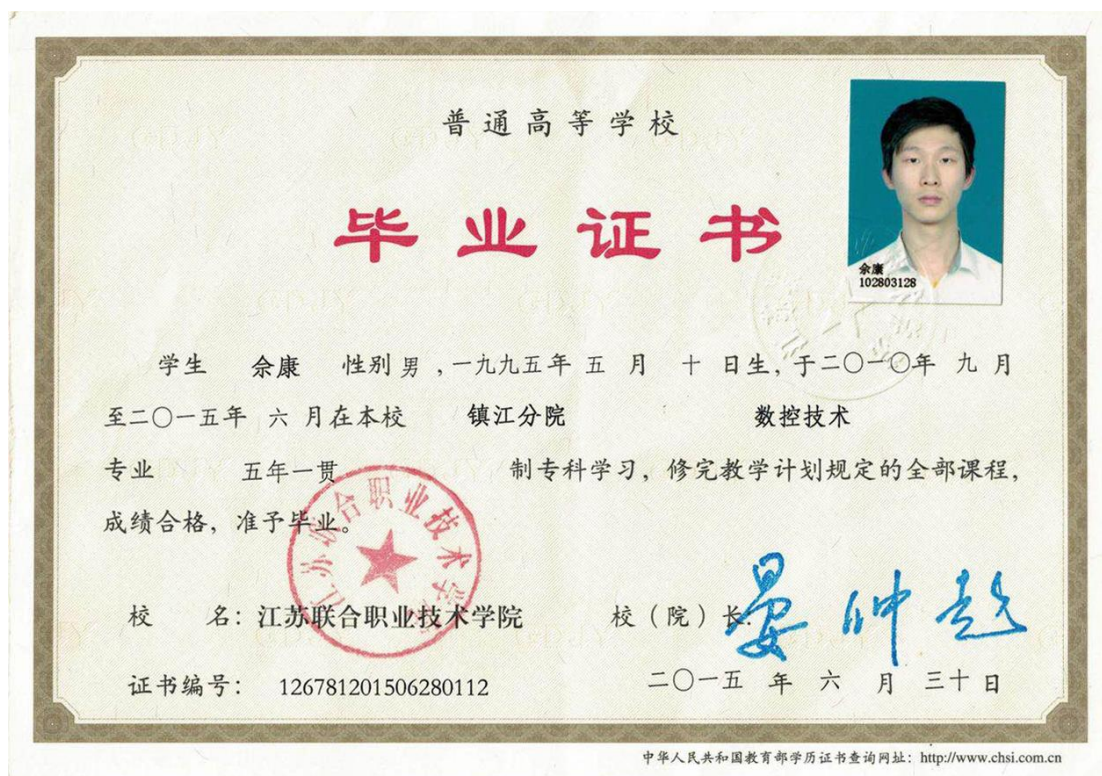 普通高等学校
毕业证书
余康
102803128
学生 佘康 性别 男 ,一九九五年 五 月 十 日生,于二〇一〇年 九 月
至二〇一五年 六 月在本校 镇江分院 数控技术
专业 五年一贯 制专科学习,修完教学计划规定的全部课程,
成绩合格,准予毕业。
江苏联合职业技术学院
校 名:江苏联合职业技术学院 校(院)长:
证书编号: 126781201506280112 二〇一五 年 六 月 三十日
中华人民共和国教育部学历证书查询网址:http://www.chsi.com.cn